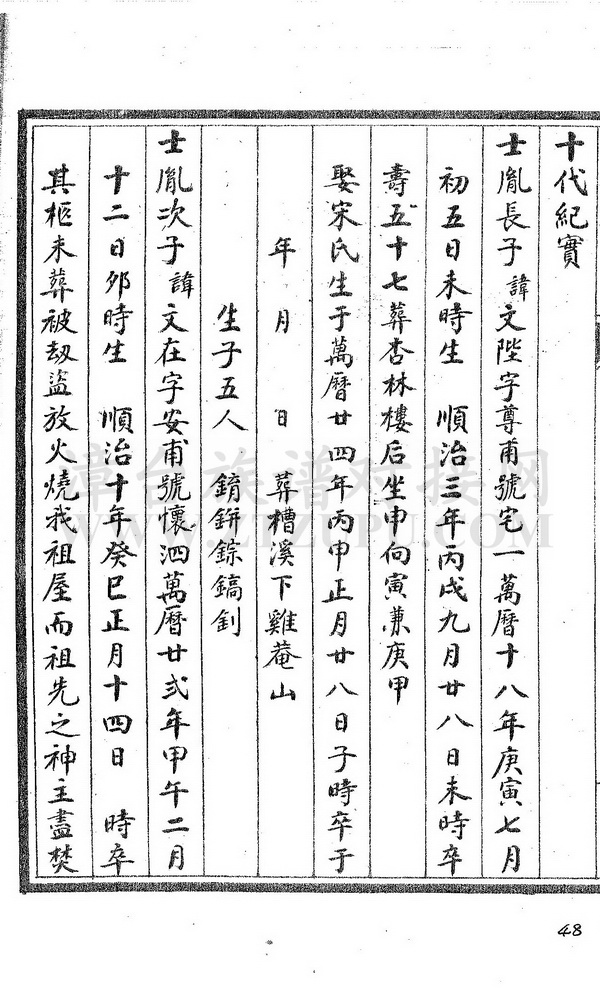 十代紀實
士胤長子諱文陛字尊甫號宅一萬曆十八年庚寅七月
初五日未時生 順治三年丙戌九月廿八日未時卒
壽五十七葬杏林樓后坐申向寅兼庚甲
娶宋氏生于萬曆廿四年丙申正月廿八日子時卒于
年 月 日 葬槽溪下雞菴山
生子五人 錥鉼錝鎬釗
士胤次子諱文在字安甫號懷泗萬曆廿弍年甲午二月
十二日卯時生 順治十年癸巳正月十四日 時卒
其柩未葬被刼盜放火燒我祖屋而祖先之神主盡焚
漳台族谱对接网
WWW.ZTZUPU.COM
48